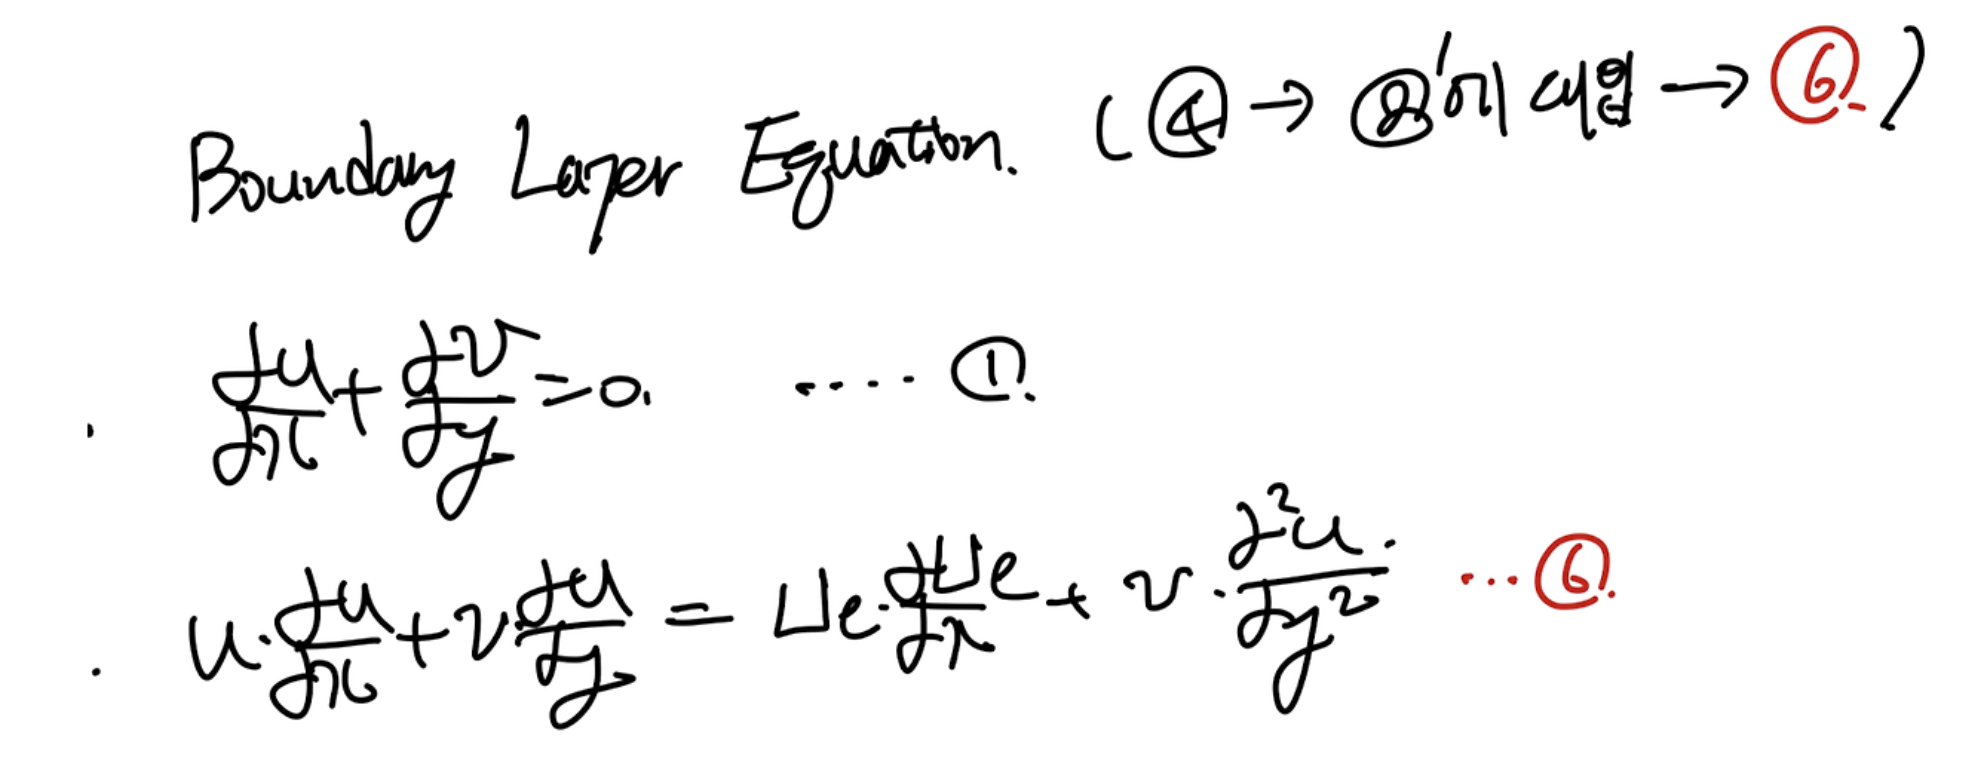 Boundary Layer Equation. (④ → ②'에 대입 → ⑥.)
∂u/∂x + ∂v/∂y = 0. ···· ①.
u·∂u/∂x + v ∂u/∂y = Ue·∂Ue/∂x + ν·∂²u/∂y² ··· ⑥.